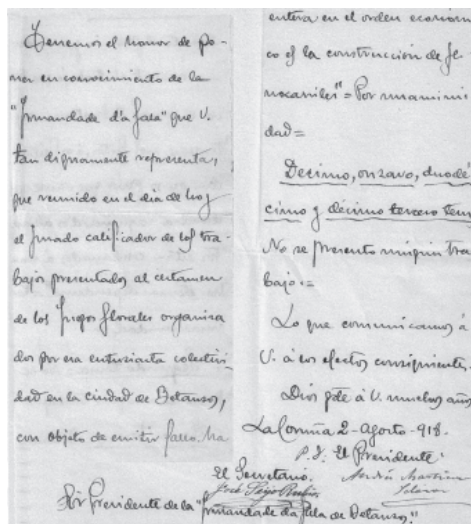 Tenemos el honor de po-
ner en conocimiento de la
"Irmandade d'a fala" que V.
tan dignamente representa,
que reunido en el dia de hoy
el Jurado calificador de los tra-
bajos presentados al certamen
de los Juegos florales organiza
dos por esa entusiasta colectivi-
dad en la ciudad de Betanzos,
con objeto de emitir fallo, ha
entera en el orden económi
co es la construcción de fe
rrocarriles" = Por unanimi
dad =
Decimo, onzavo, duodé
cimo y décimo tercero tem
No se presento ningún tra
bajo. =
Lo que comunicamos á
V. á los efectos consiguientes.
Dios gde á V. muchos años
La Coruña 2 - agosto - 918.
El Presidente
El Secretario.
Sr. Presidente de la "Irmandade da fala de Betanzos."